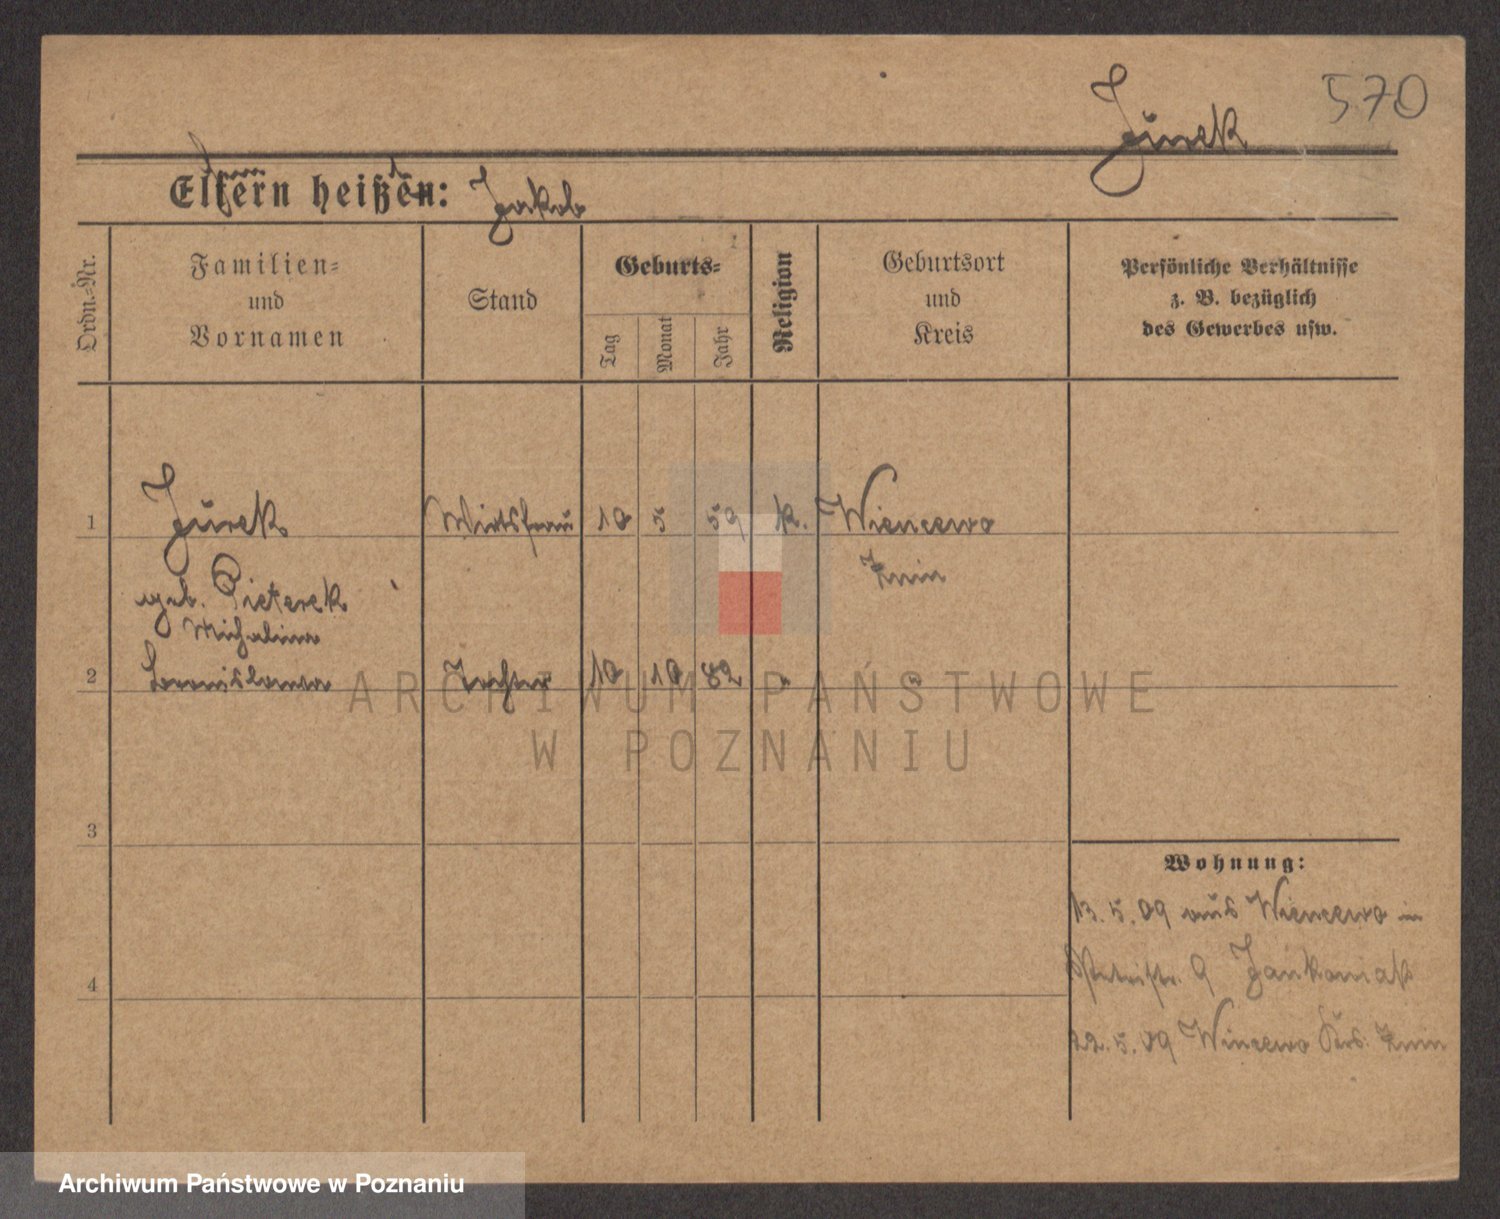 570
Jurek
Eltern heißen: Jakob
Ordn.-Nr.
Familien-
und
Vornamen
Stand
Geburts-
Tag
Monat
Jahr
Religion
Geburtsort
und
Kreis
Persönliche Verhältnisse
z. B. bezüglich
des Gewerbes usw.
1 Jurek Wirtsfrau 10 5 59 k. Wiencewo
Znin
geb. Pieterek
Michalina
2 Bronislawa Tochter 10 10 82 " "
3
4
Wohnung:
13.5.09 aus Wiencewo in
9 Jankowiak
22.5.09 Wincewo Krs. Znin
ARCHIWUM PAŃSTWOWE
W POZNANIU
Archiwum Państwowe w Poznaniu